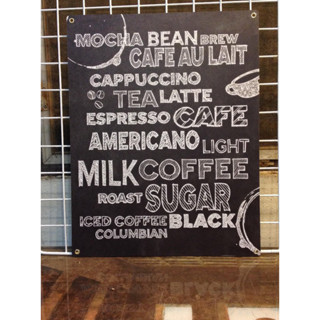 MOCHA BEAN BREW
CAFE AU LAIT
CAPPUCCINO
TEA LATTE
ESPRESSO CAFE
AMERICANO LIGHT
MILK COFFEE
ROAST SUGAR
ICED COFFEE BLACK
COLUMBIAN